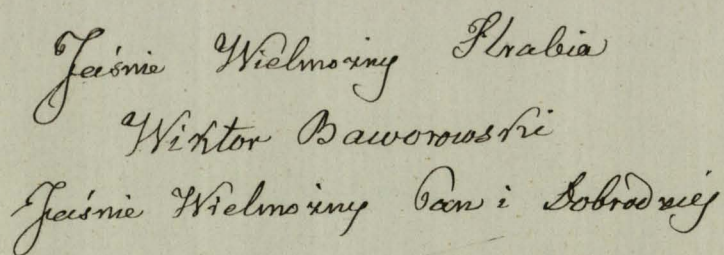 Jaśnie Wielmożny Hrabia
Wiktor Baworowski
Jaśnie Wielmożny Pan i Dobrodziéj